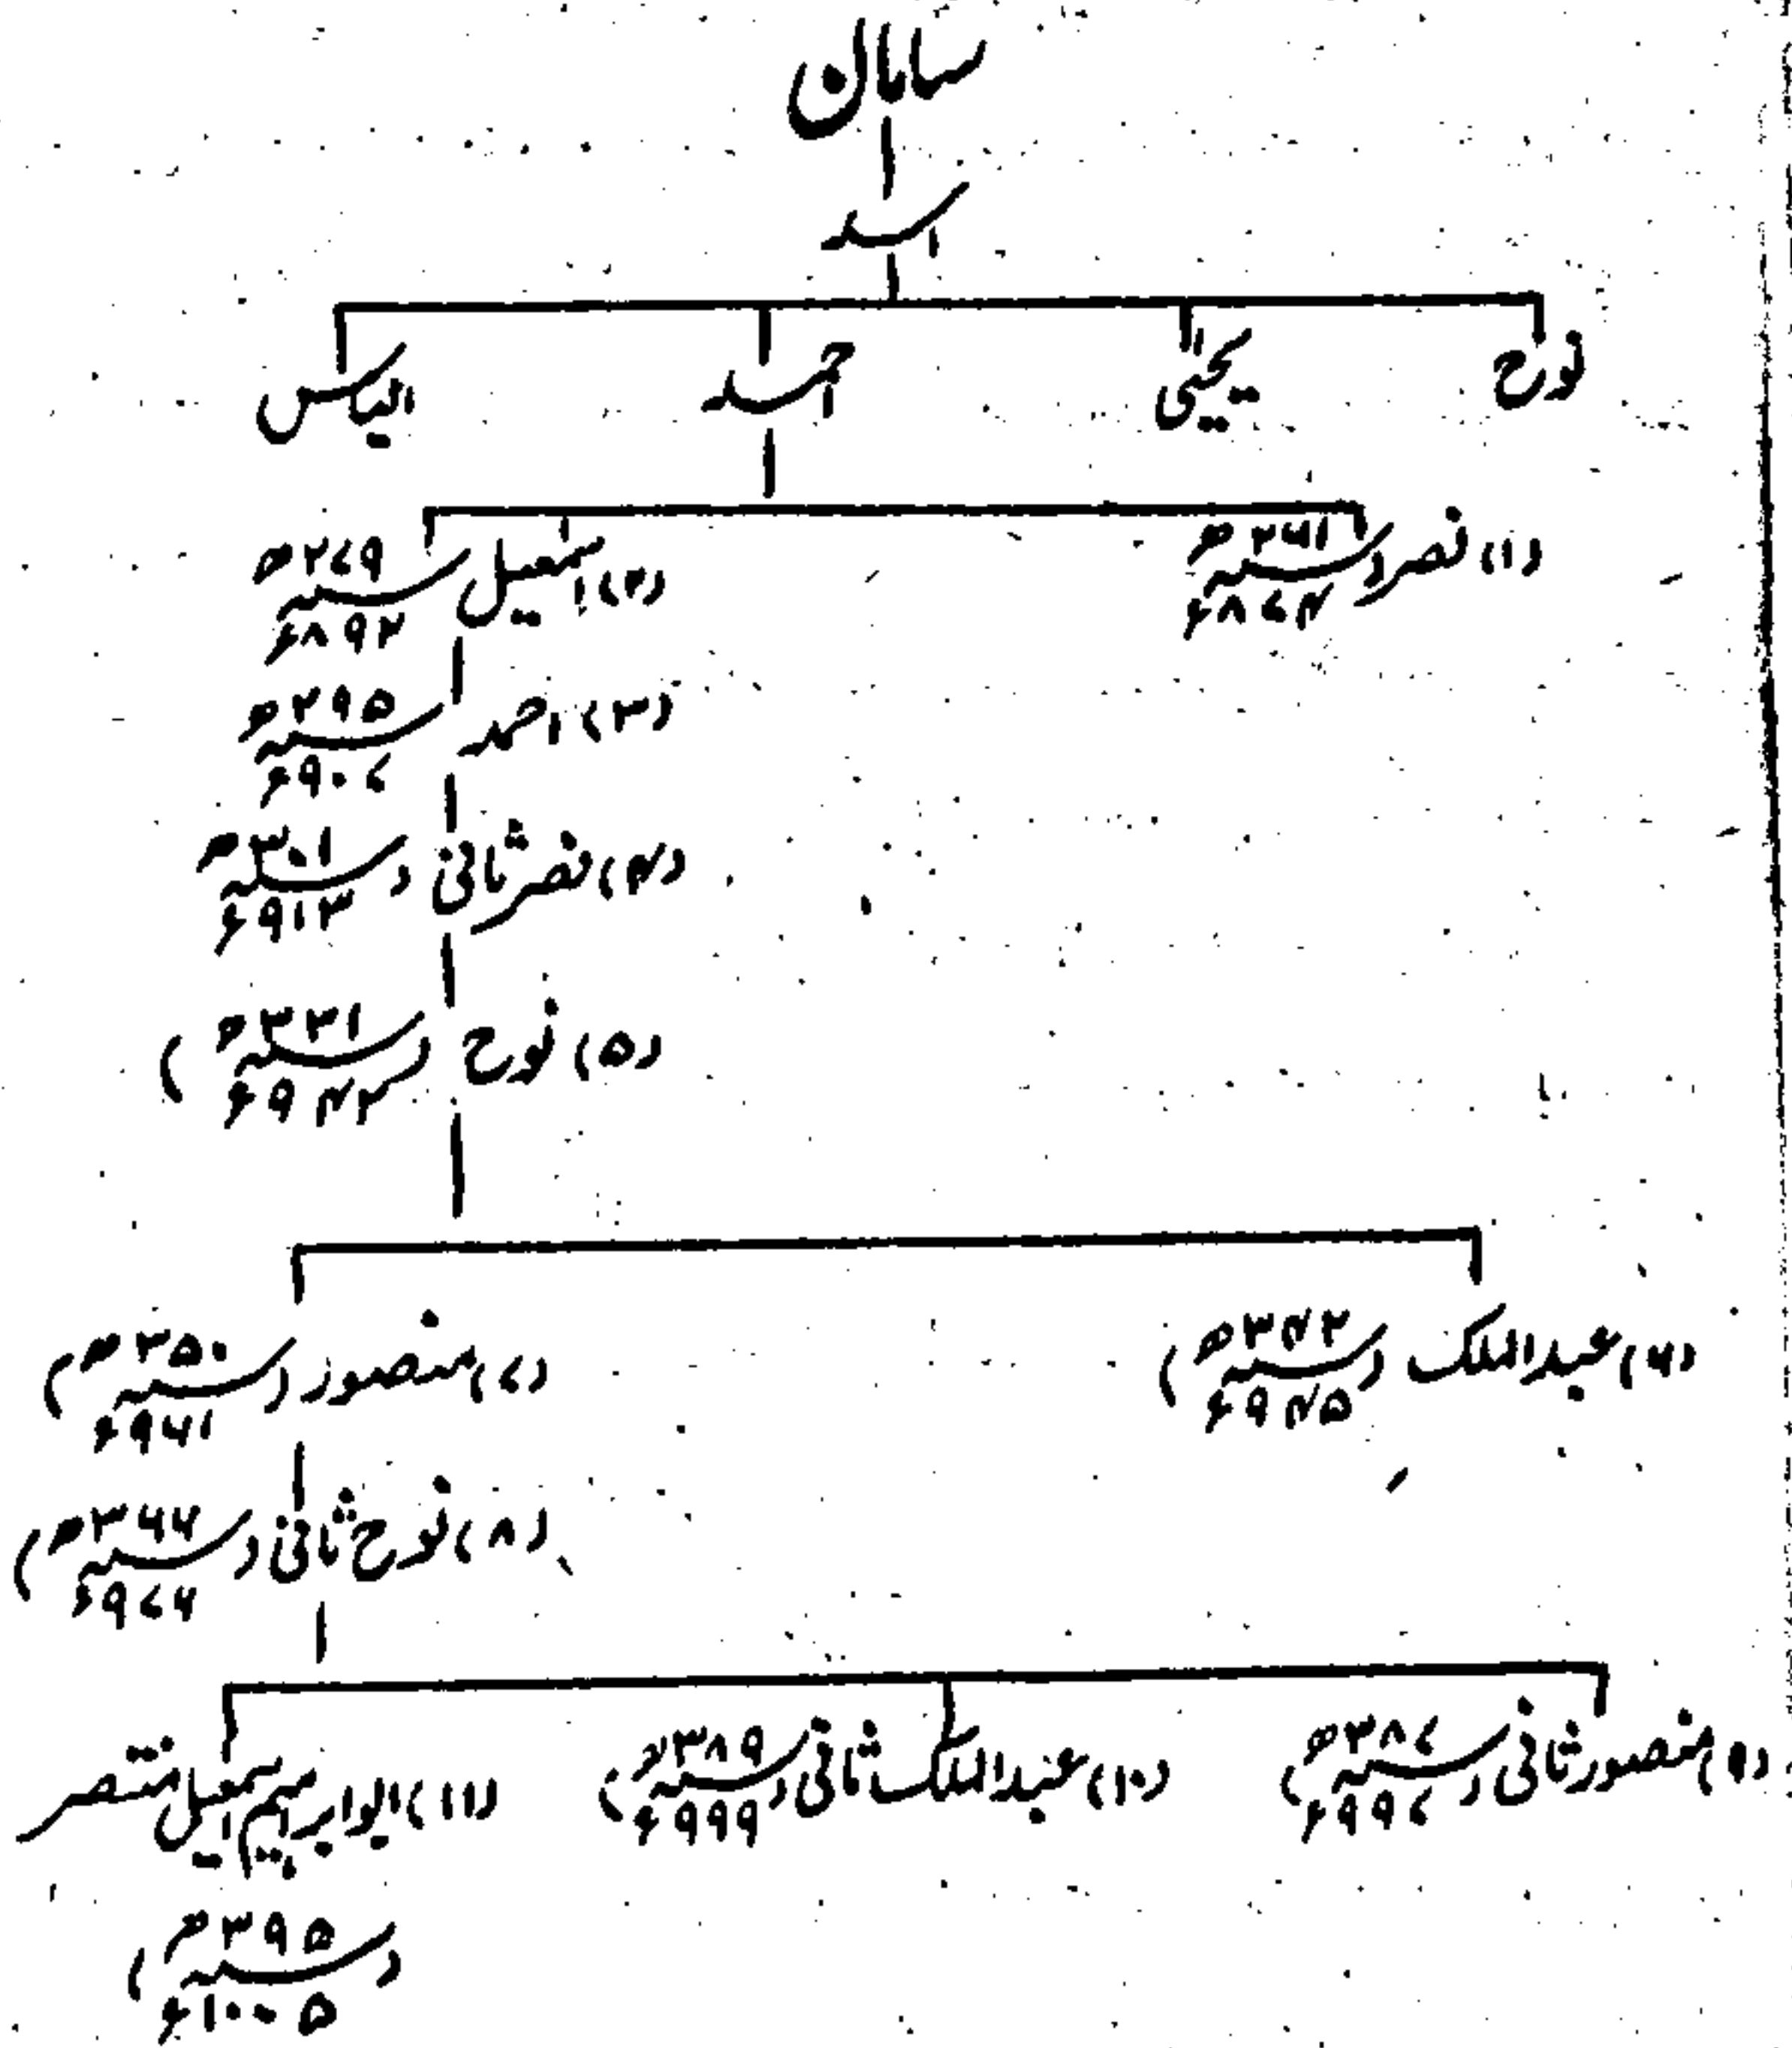 سامان
اسد
نوح یحییٰ احمد الیاس
(۱) نصر (سنہ ۲۶۱ھ / ۸۷۴ء
(۲) اسمٰعیل سنہ ۲۷۹ھ / ۸۹۲ء
(۳) احمد سنہ ۲۹۵ھ / ۹۰۷ء
(۴) نصر ثانی (سنہ ۳۰۱ھ / ۹۱۳ء
(۵) نوح (سنہ ۳۳۱ھ / ۹۴۲ء)
(۶) عبدالملک (سنہ ۳۴۳ھ / ۹۴۵ء)
(۷) منصور (سنہ ۳۵۰ھ / ۹۶۱ء)
(۸) نوح ثانی (سنہ ۳۶۶ھ / ۹۷۶ء)
(۹) منصور ثانی (سنہ ۳۸۷ھ / ۹۹۷ء)
(۱۰) عبدالملک ثانی (سنہ ۳۸۹ھ / ۹۹۹ء)
(۱۱) ابو ابراہیم اسمٰعیل منتصر
(سنہ ۳۹۵ھ / ۱۰۰۵ء)